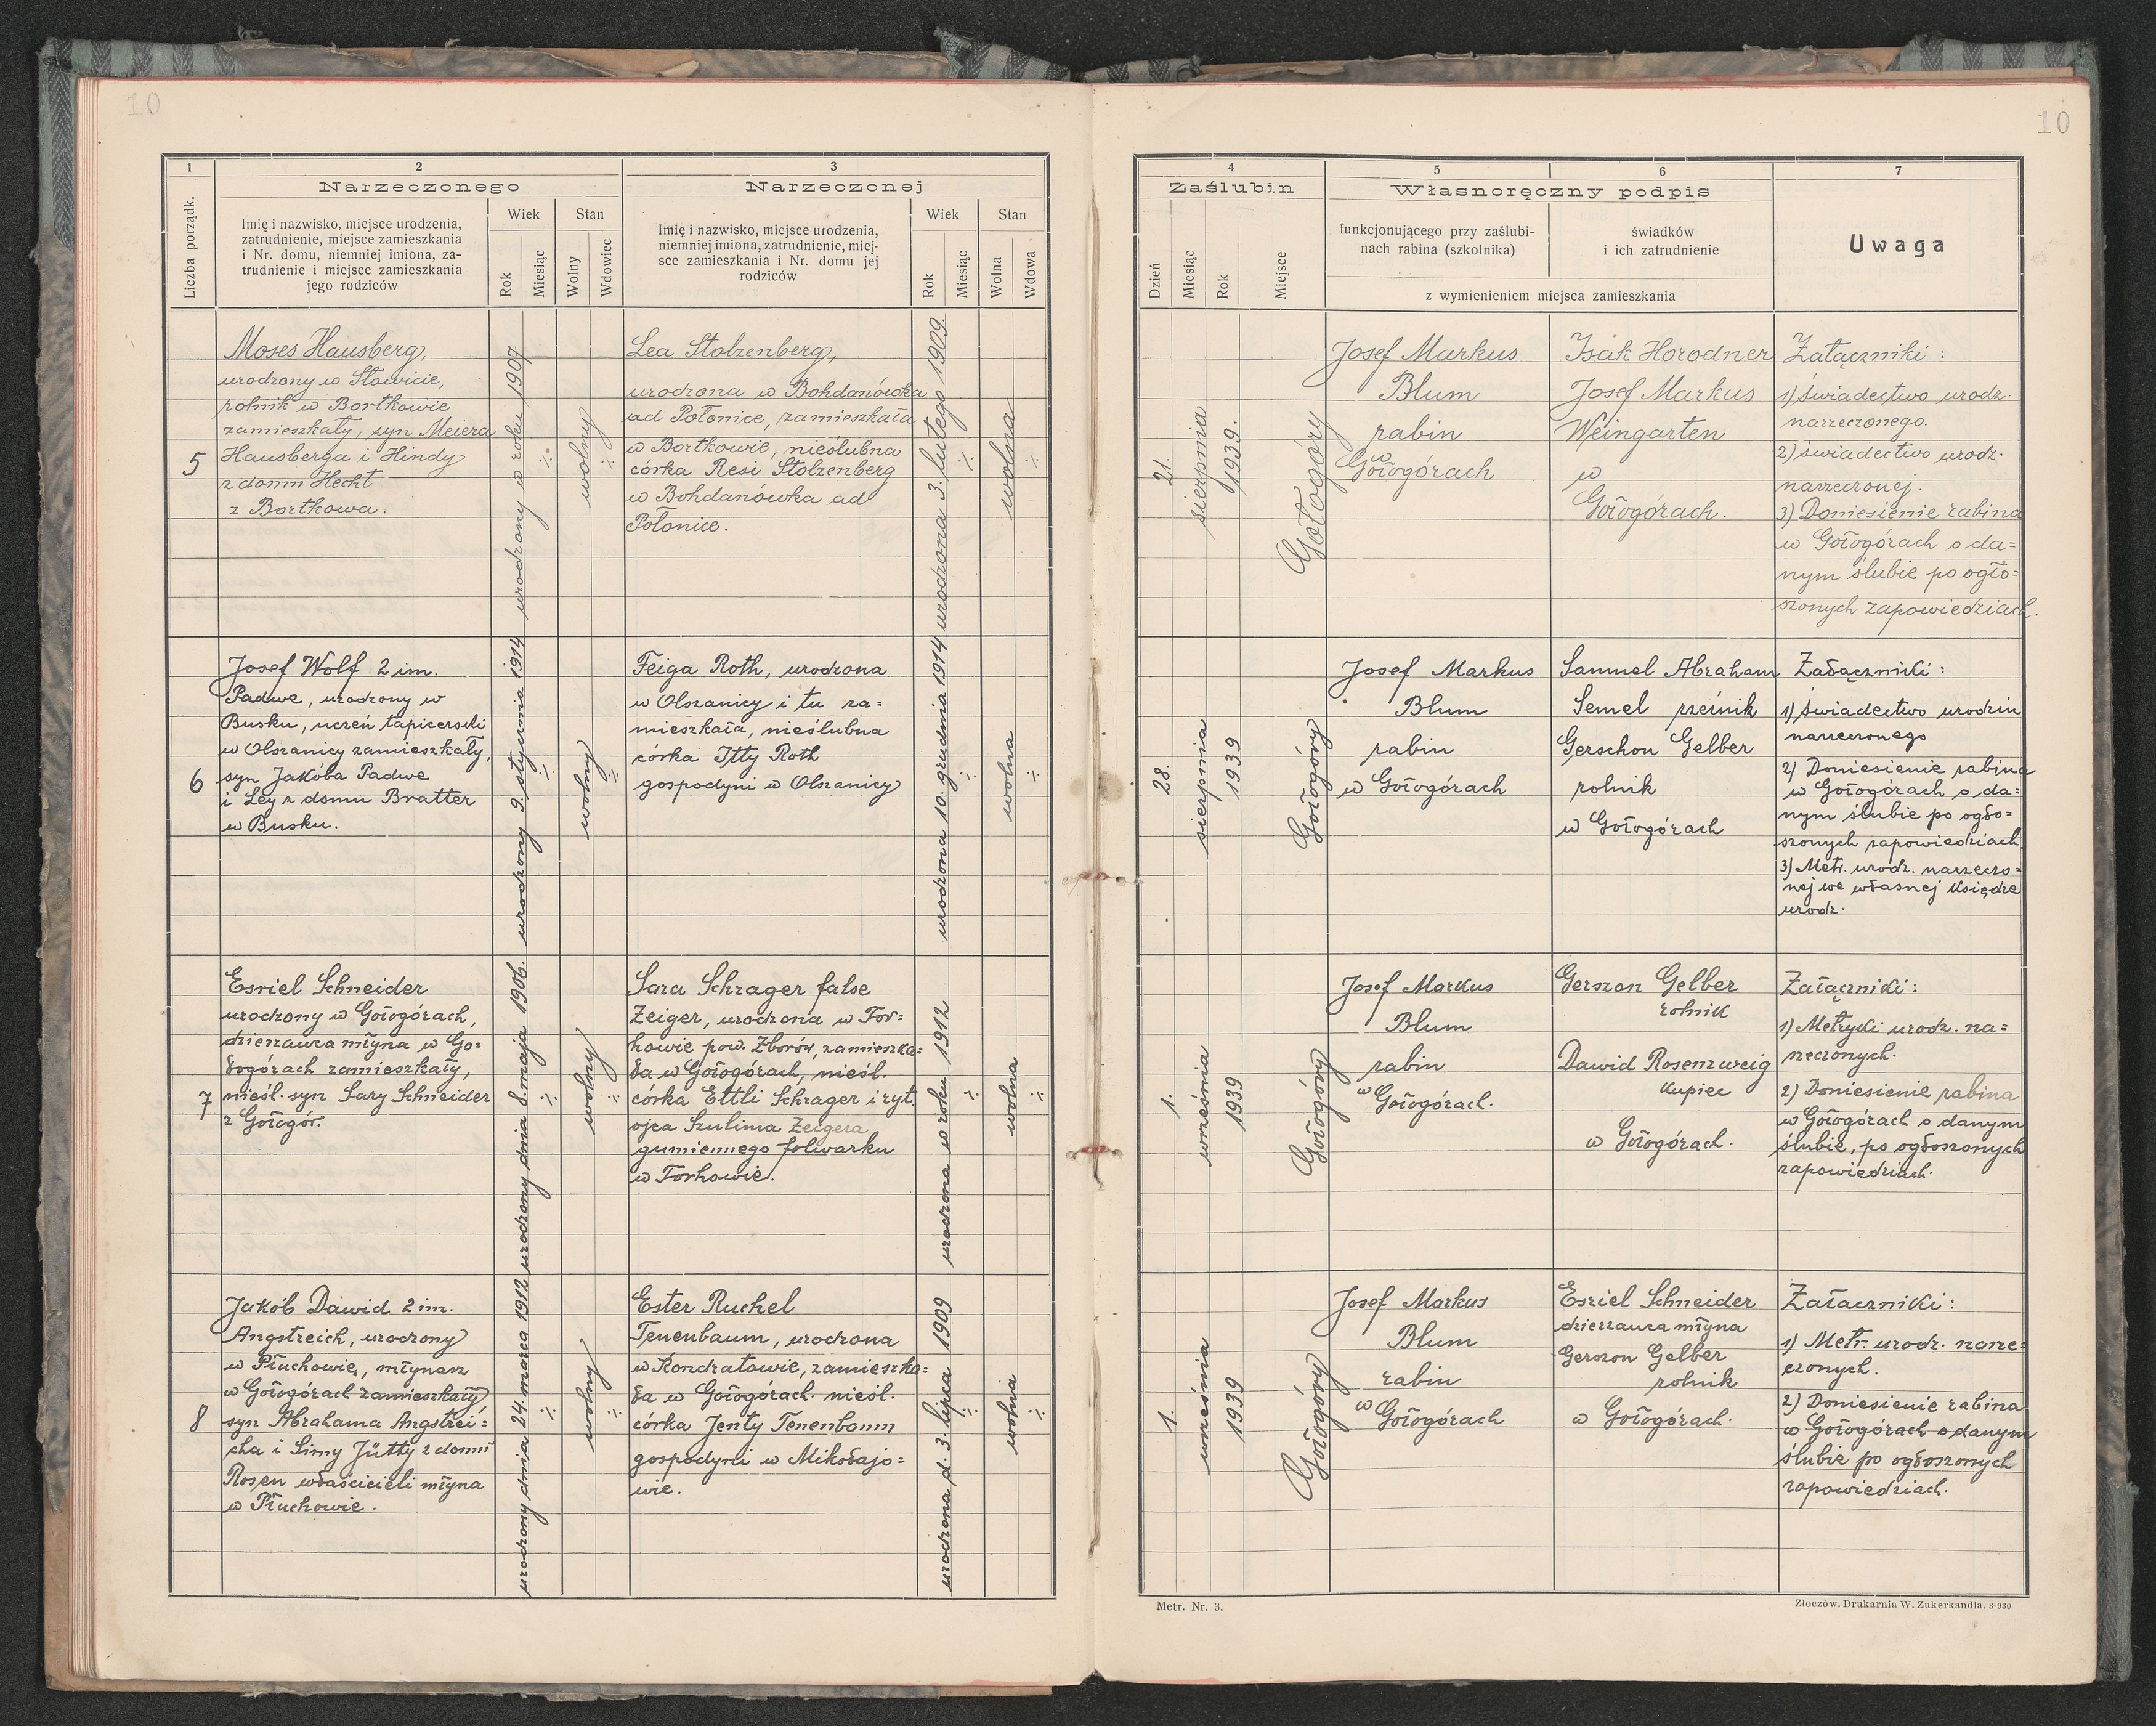 10
10
1
2
3
Narzeczonego
Narzeczonej
Liczba porządk.
Imię i nazwisko, miejsce urodzenia,
zatrudnienie, miejsce zamieszkania
i Nr. domu, niemniej imiona, za-
trudnienie i miejsce zamieszkania
jego rodziców
Wiek
Stan
Rok
Miesiąc
Wolny
Wdowiec
Imię i nazwisko, miejsce urodzenia,
niemniej imiona, zatrudnienie, miej-
sce zamieszkania i Nr. domu jej
rodziców
Wiek
Stan
Rok
Miesiąc
Wolna
Wdowa
4
5
6
7
Zaślubin
Własnoręczny podpis
Uwaga
Dzień
Miesiąc
Rok
Miejsce
funkcjonującego przy zaślubi-
nach rabina (szkolnika)
świadków
i ich zatrudnienie
z wymienieniem miejsca zamieszkania
5
Moses Hausberg,
urodzony w Sławicie,
rolnik w Bortkowie
zamieszkały, syn Meiera
Hausberga i Hindy
z domu Hecht
z Bortkowa.
urodzony w roku 1907
wolny
Lea Stolzenberg,
urodzona w Bohdanówka
ad Połonice, zamieszkała
w Bortkowie, nieślubna
córka Resi Stolzenberg
w Bohdanówka ad
Połonice.
urodzona 3. lutego 1909.
wolna
21.
sierpnia
1939.
Gołogóry
Josef Markus
Blum
rabin
w
Gołogórach
Isak Horodner
Josef Markus
Weingarten
w
Gołogórach.
Załączniki :
1) Świadectwo urodz.
narzeczonego.
2) świadectwo urodz.
narzeczonej.
3) Doniesienie rabina
w Gołogórach o da=
nym ślubie po ogło=
szonych zapowiedziach.
6
Josef Wolf 2 im.
Padwe, urodzony w
Busku, uczeń tapicerski
w Olszanicy zamieszkały,
syn Jakóba Padwe
i Ley z domu Bratter
w Busku.
urodzony 9. stycznia 1914
wolny
Feiga Roth, urodzona
w Olszanicy i tu za=
mieszkała, nieślubna
córka Itty Roth
gospodyni w Olszanicy
urodzona 10. grudnia 1914
wolna
28.
sierpnia
1939
Gołogóry
Josef Markus
Blum
rabin
w Gołogórach
Samuel Abraham
Semel rzeźnik
Gerschon Gelber
rolnik
w Gołogórach
Załączniki :
1) Świadectwo urodzin
narzeczonego
2) Doniesienie rabina
w Gołogórach o da=
nym ślubie po ogło=
szonych zapowiedziach.
3) Metr. urodz. narzeczo=
nej we własnej księdze
urodz.
7
Esriel Schneider
urodzony w Gołogórach,
dzierżawca młyna w Go=
łogórach zamieszkały,
nieśl. syn Sary Schneider
z Gołogór.
urodzony dnia 8. maja 1906.
wolny
Sara Schrager false
Zeiger, urodzona w Tor=
howie pow. Zborów, zamieszka=
ła w Gołogórach, nieśl.
córka Ettli Schrager i ryt.
ojca Szulima Zeigera
gumiennego folwarku
w Torhowie.
urodzona w roku 1912
wolna
1.
września
1939
Gołogóry
Josef Markus
Blum
rabin
w Gołogórach.
Gerszon Gelber
rolnik
Dawid Rosenzweig
kupiec
w Gołogórach.
Załączniki :
1) Metryki urodz. na=
rzeczonych.
2) Doniesienie rabina
w Gołogórach o danym
ślubie, po ogłoszonych
zapowiedziach.
8
Jakób Dawid 2 im.
Angstreich, urodzony
w Płuchowie, młynarz
w Gołogórach zamieszkały
syn Abrahama Angstrei=
cha i Simy Jütty z domu
Rosen właścicieli młyna
w Płuchowie.
urodzony dnia 24. marca 1912
wolny
Ester Ruchel
Tenenbaum, urodzona
w Kondratowie, zamieszka=
ła w Gołogórach. nieśl.
córka Jenty Tenenbaum
gospodyni w Mikołajo=
wie.
urodzona d. 3. lipca 1909
wolna
1.
września
1939
Gołogóry
Josef Markus
Blum
rabin
w Gołogórach
Esriel Schneider
dzierżawca młyna
Gerszon Gelber
rolnik
w Gołogórach.
Załączniki :
1) Metr. urodz. narze=
czonych.
2) Doniesienie rabina
w Gołogórach o danym
ślubie po ogłoszonych
zapowiedziach.
Metr. Nr. 3.
Złoczów. Drukarnia W. Zukerkandla. 3-930